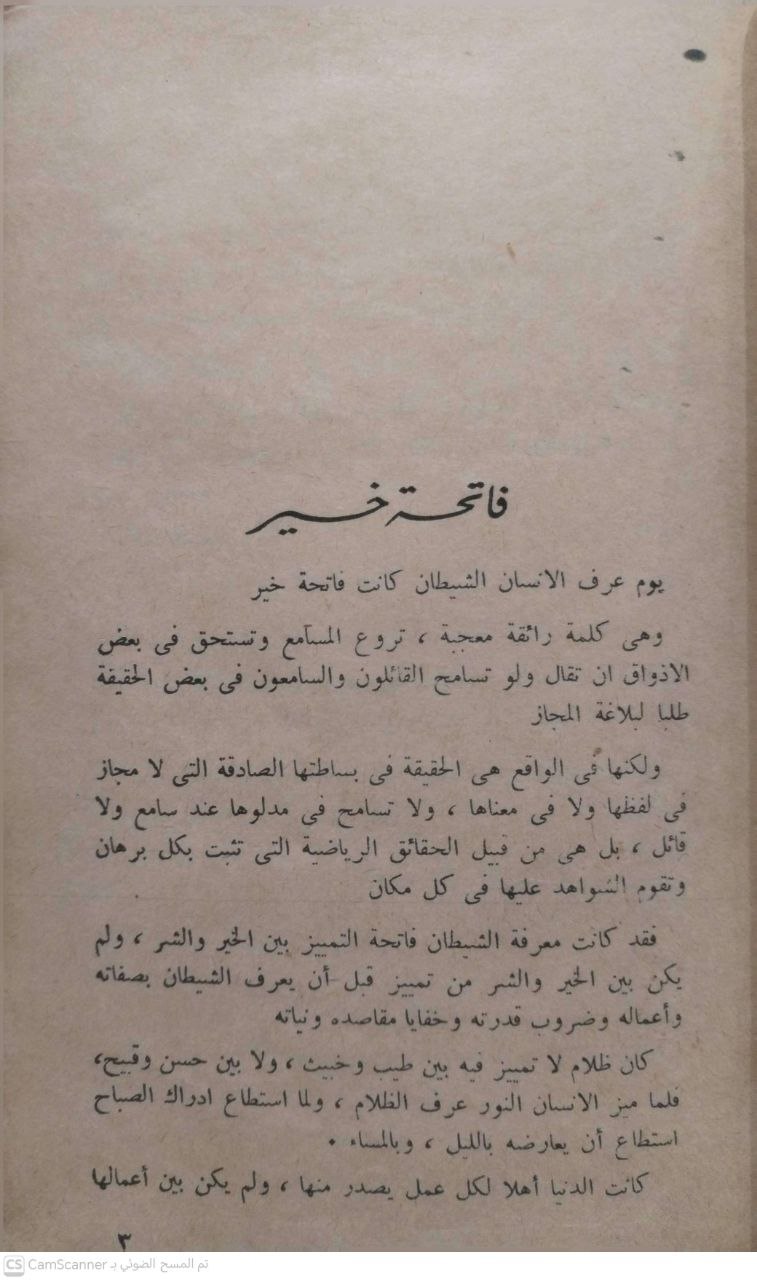 فاتحة خير
يوم عرف الانسان الشيطان كانت فاتحة خير
وهى كلمة رائقة معجبة ، تروع المسامع وتستحق فى بعض
الاذواق ان تقال ولو تسامح القائلون والسامعون فى بعض الحقيقة
طلبا لبلاغة المجاز
ولكنها فى الواقع هى الحقيقة فى بساطتها الصادقة التى لا مجاز
فى لفظها ولا فى معناها ، ولا تسامح فى مدلوها عند سامع ولا
قائل ، بل هى من قبيل الحقائق الرياضية التى تثبت بكل برهان
وتقوم الشواهد عليها فى كل مكان
فقد كانت معرفة الشيطان فاتحة التمييز بين الخير والشر ، ولم
يكن بين الخير والشر من تمييز قبل أن يعرف الشيطان بصفاته
وأعماله وضروب قدرته وخفايا مقاصده ونياته
كان ظلام لا تمييز فيه بين طيب وخبيث ، ولا بين حسن وقبيح،
فلما ميز الانسان النور عرف الظلام ، ولما استطاع ادراك الصباح
استطاع أن يعارضه بالليل ، وبالمساء .
كانت الدنيا أهلا لكل عمل يصدر منها ، ولم يكن بين أعمالها
٣
CS CamScanner تم المسح الضوئي بـ